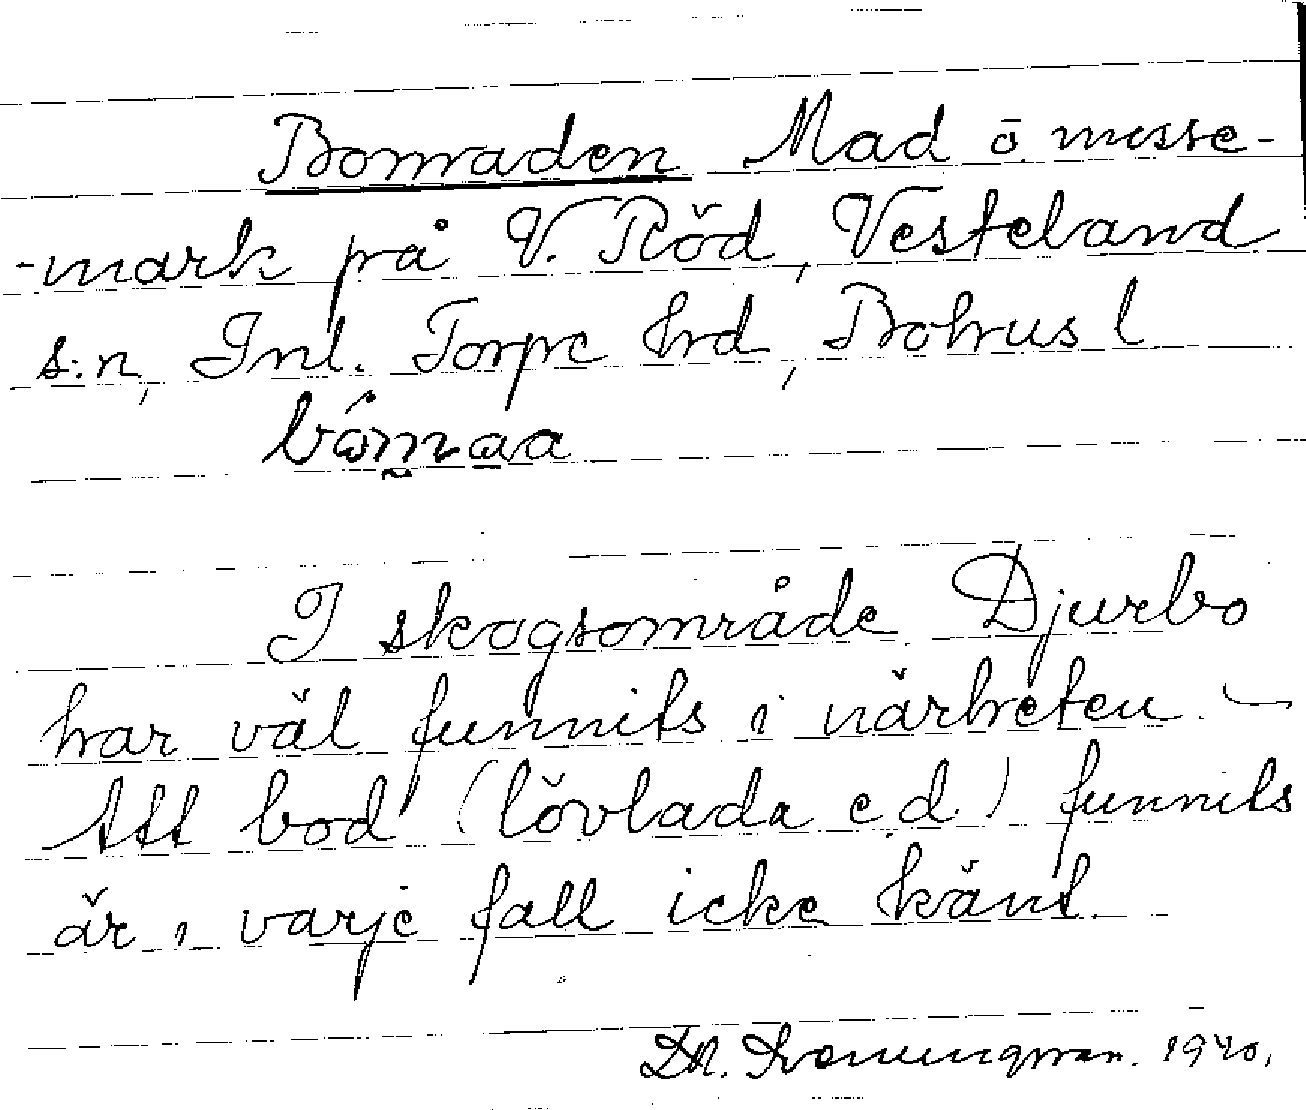 Bomaden Mad o mosse-
-mark på V. Röd, Vesteland
s:n, Inl. Torpe hrd, Bohus l
I skogsområde Djurbo
har väl funnits i närheten. –
Att bod (lövlada e.d.) funnits
är i varje fall icke känt.
1940.